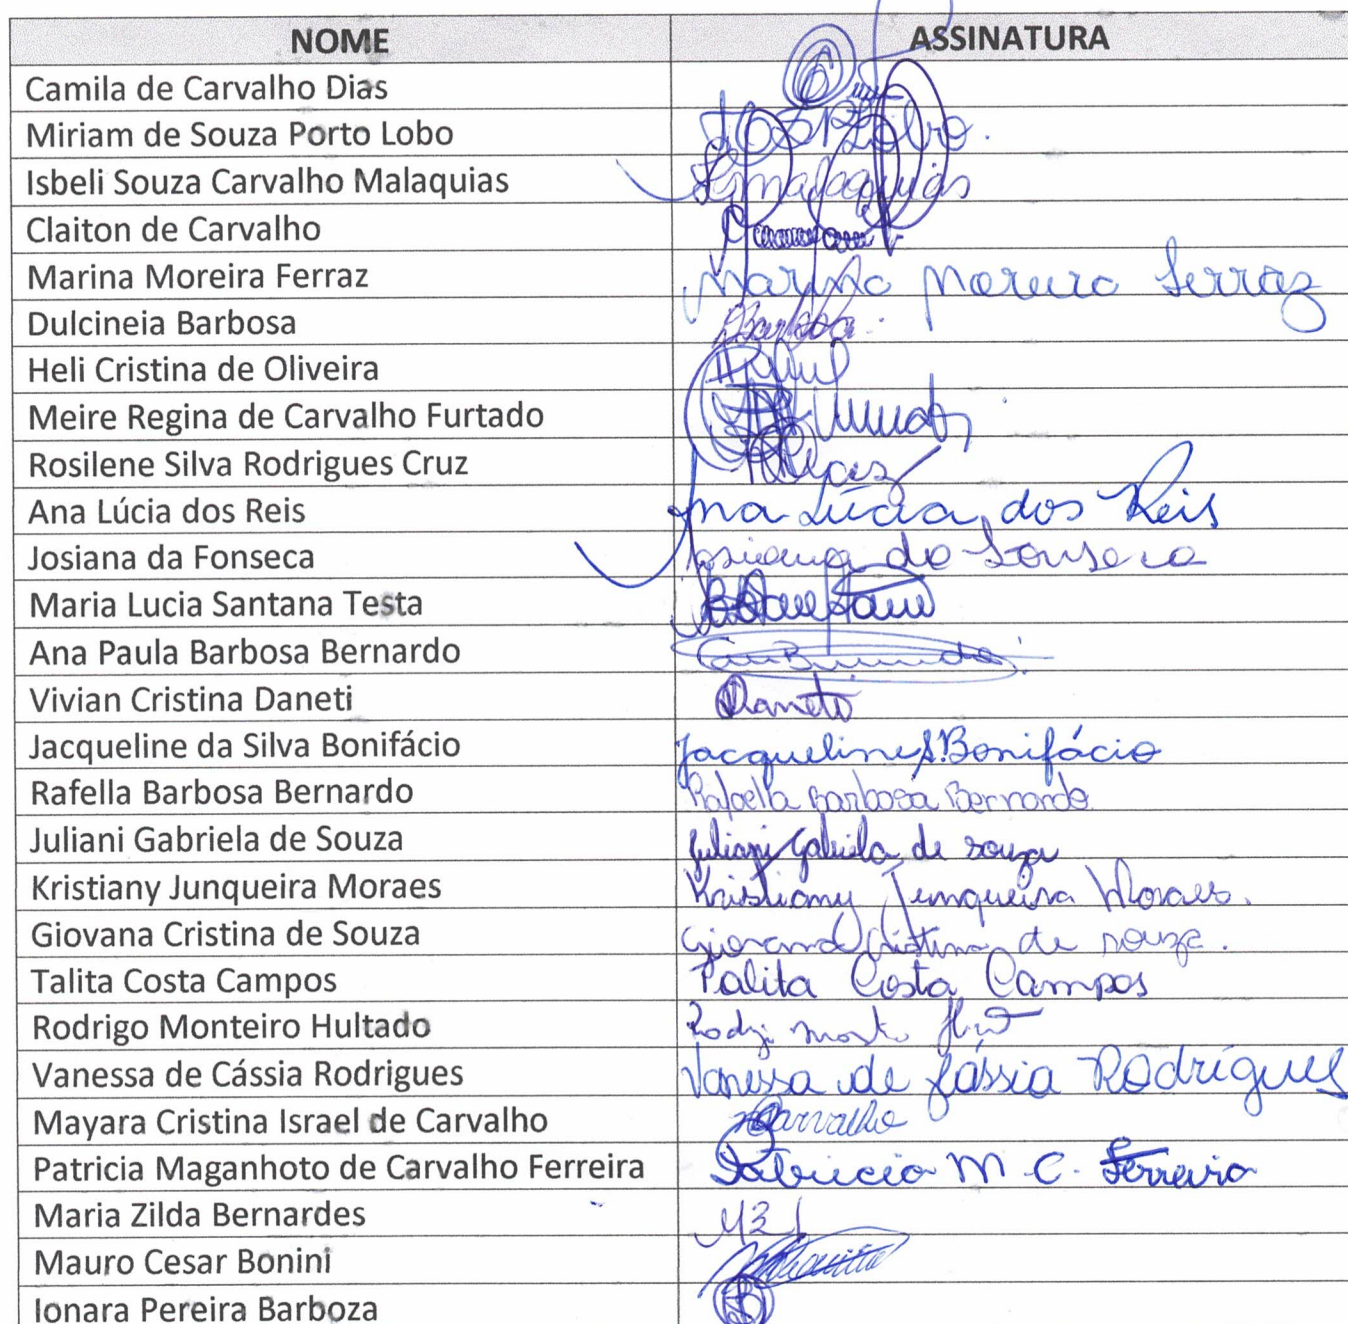 NOME ASSINATURA
Camila de Carvalho Dias
Miriam de Souza Porto Lobo
Isbeli Souza Carvalho Malaquias
Claiton de Carvalho
Marina Moreira Ferraz Marina Moreira Ferraz
Dulcineia Barbosa
Heli Cristina de Oliveira
Meire Regina de Carvalho Furtado
Rosilene Silva Rodrigues Cruz
Ana Lúcia dos Reis Ana Lúcia dos Reis
Josiana da Fonseca Josiana da Fonseca
Maria Lucia Santana Testa
Ana Paula Barbosa Bernardo
Vivian Cristina Daneti Daneti
Jacqueline da Silva Bonifácio Jacqueline S. Bonifácio
Rafella Barbosa Bernardo Rafaella Barbosa Bernardo
Juliani Gabriela de Souza Juliani Gabriela de Souza
Kristiany Junqueira Moraes Kristiany Junqueira Moraes.
Giovana Cristina de Souza Giovana Cristina de Souza.
Talita Costa Campos Talita Costa Campos
Rodrigo Monteiro Hultado
Vanessa de Cássia Rodrigues Vanessa de Cássia Rodrigues
Mayara Cristina Israel de Carvalho Carvalho
Patricia Maganhoto de Carvalho Ferreira Patricia M. C. Ferreira
Maria Zilda Bernardes
Mauro Cesar Bonini
Ionara Pereira Barboza